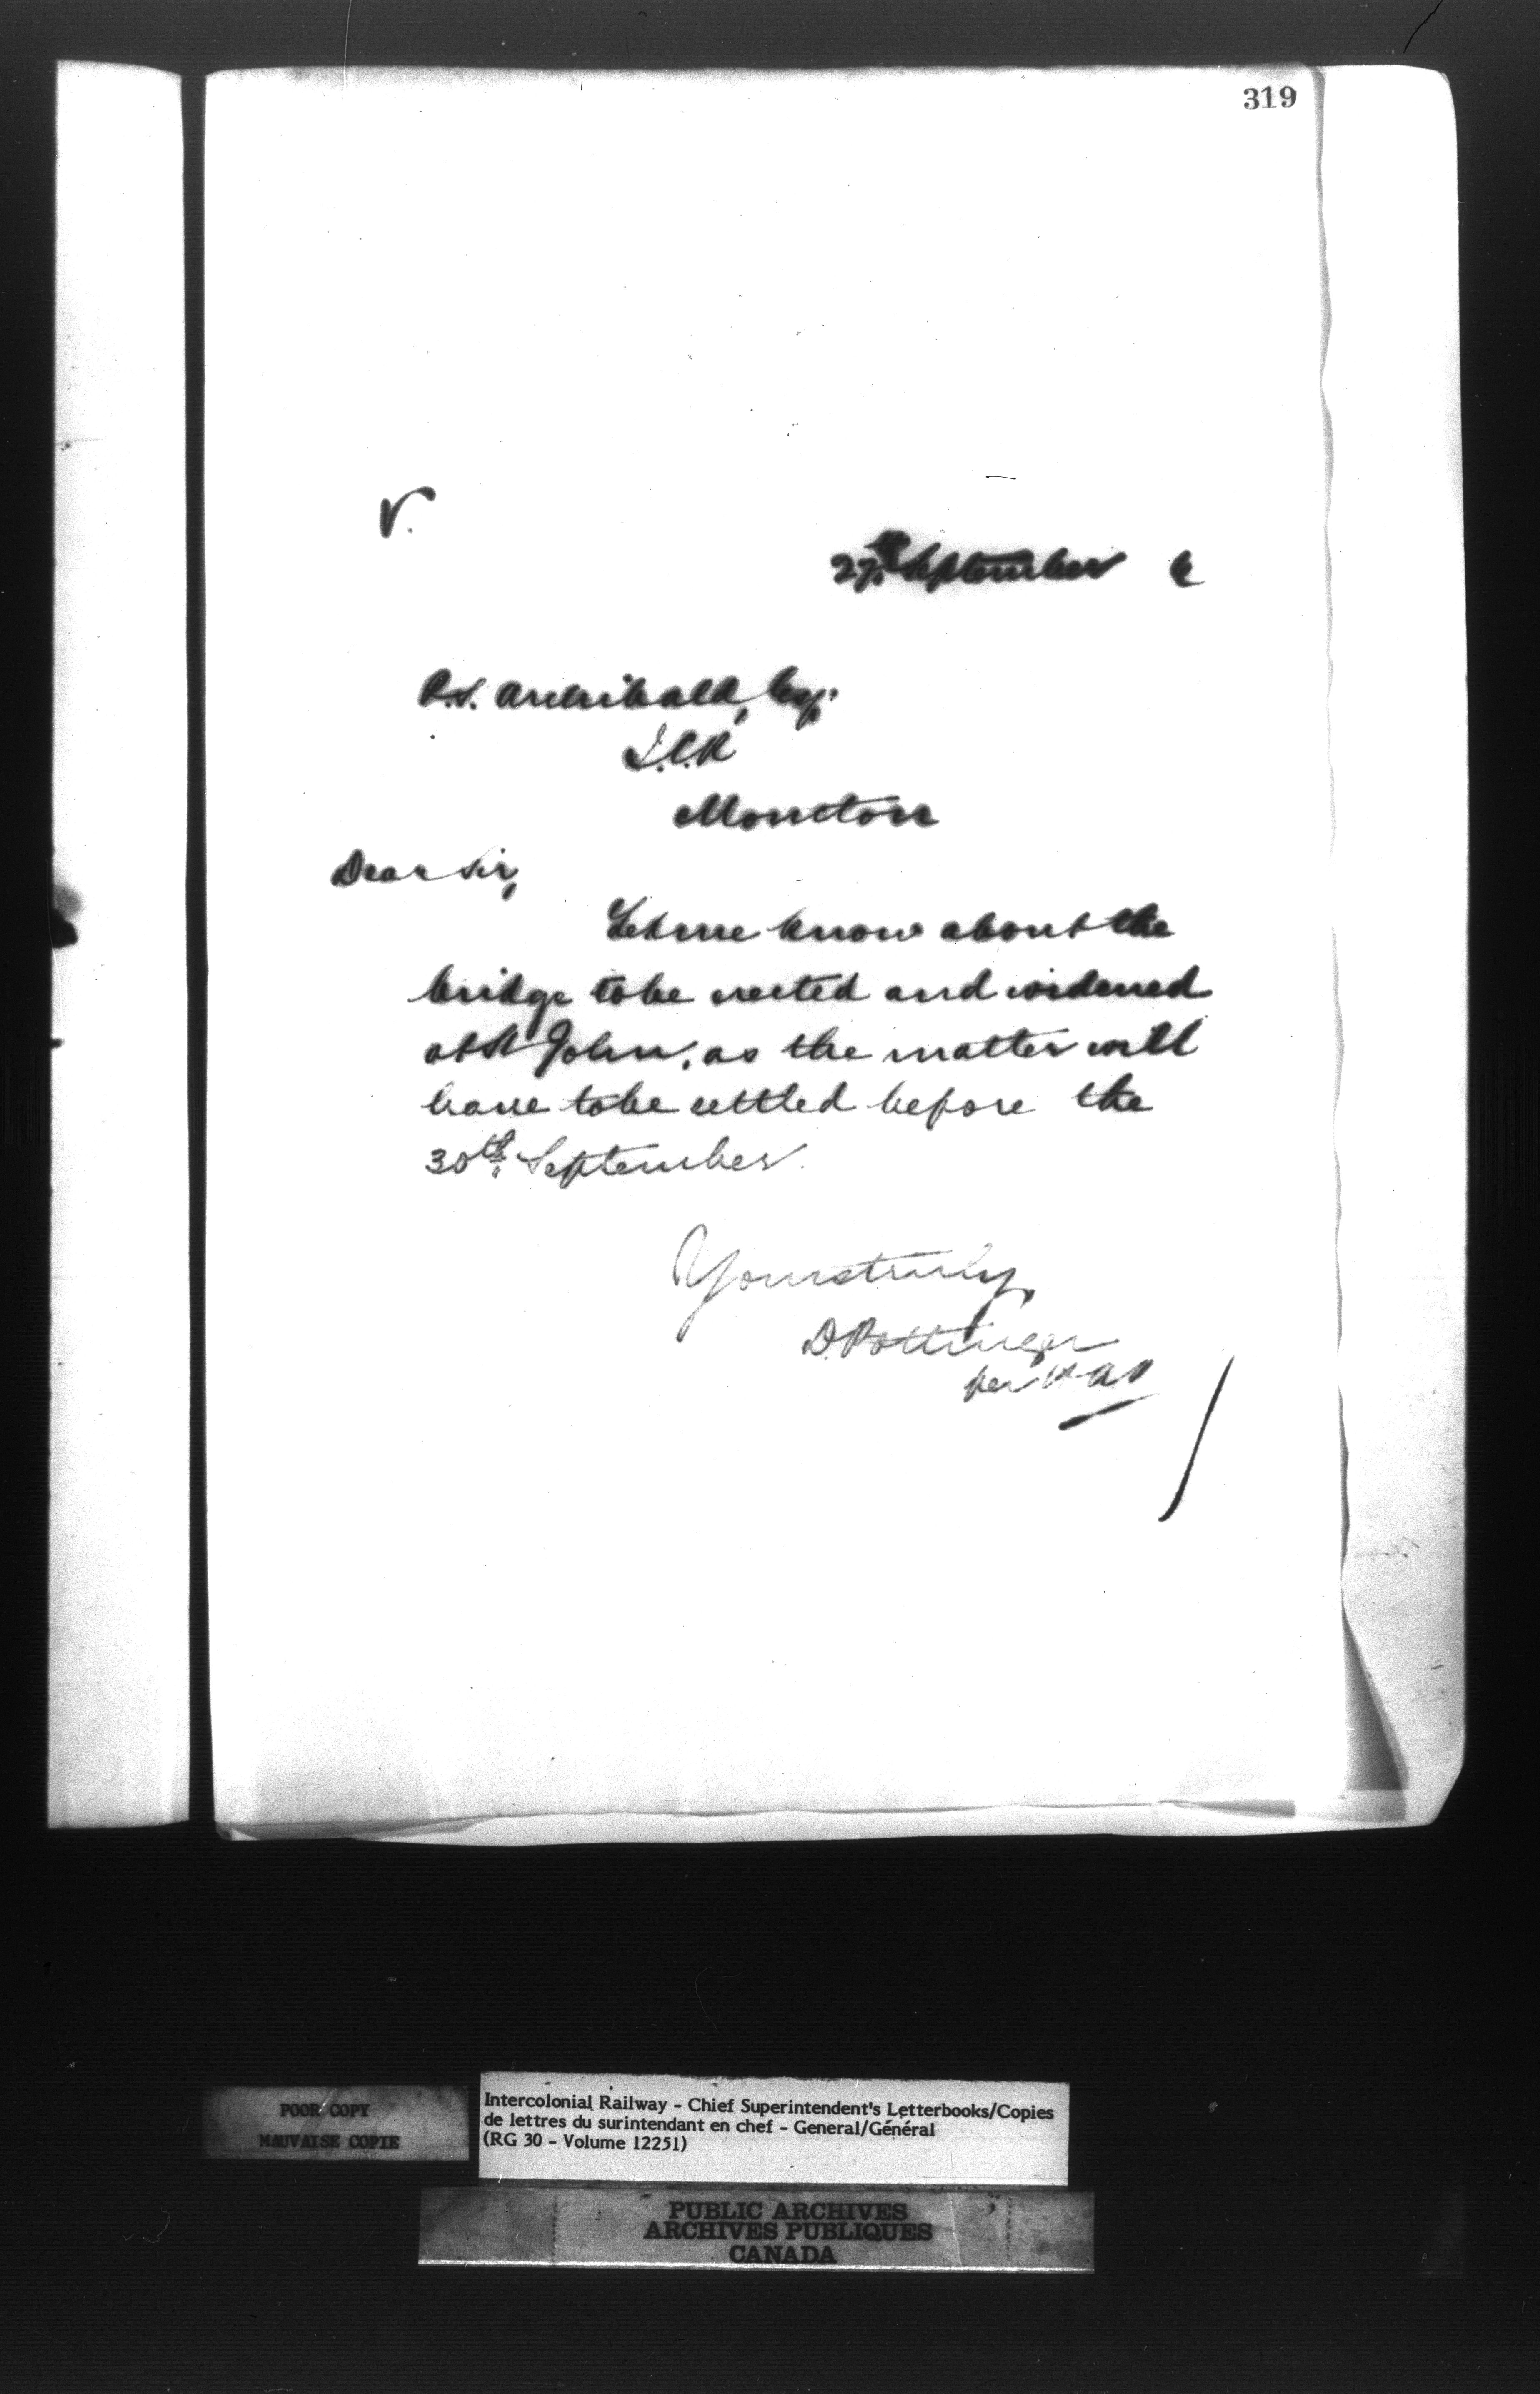 319
V.
27th September 6
P.S. Archibald, Esq.
I.C.R
Moncton
Dear Sir,
Let me know about the
bridge to be erected and widened
at St John, as the matter will
have to be settled before the
30th September.
Yours truly,
D. Pottinger
per
POOR COPY
MAUVAISE COPIE
Intercolonial Railway - Chief Superintendent's Letterbooks/Copies
de lettres du surintendant en chef - General/Général
(RG 30 - Volume 12251)
PUBLIC ARCHIVES
ARCHIVES PUBLIQUES
CANADA